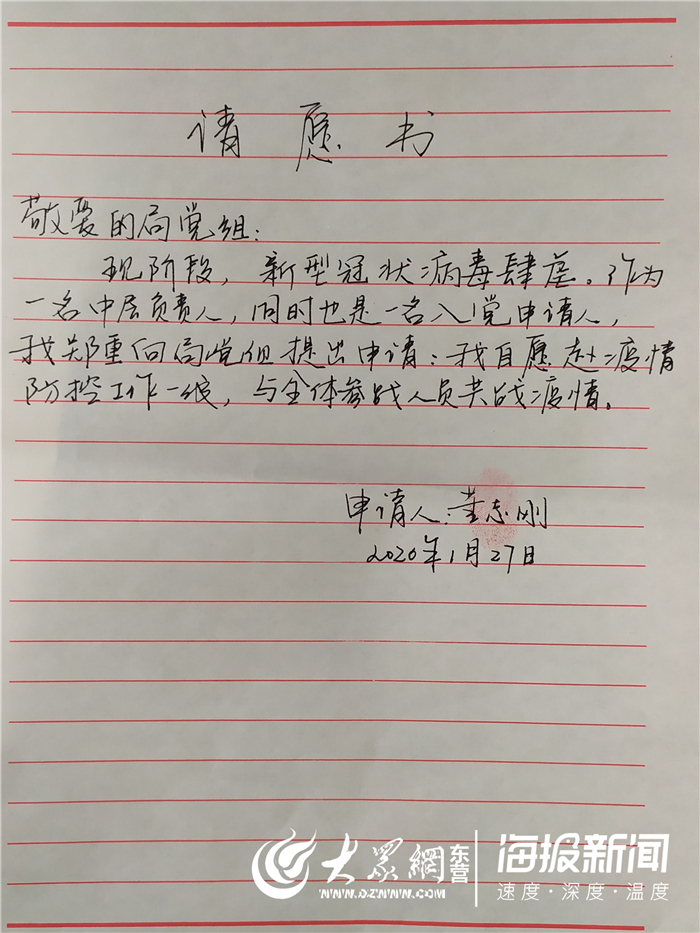 请愿书
敬爱的局党组:
现阶段,新型冠状病毒肆虐。作为
一名中层负责人,同时也是一名入党申请人,
我郑重向局党组提出申请:我自愿赴疫情
防控工作一线,与全体参战人员共战疫情。
申请人:董志刚
2020年1月27日
大众網 东营 海报新闻
WWW.DZWWW.COM 速度·深度·温度